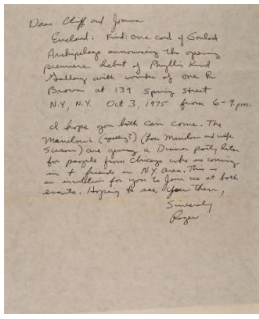 Dear Cliff and Joanna
Enclosed: Find: one card of Goulash
Archipelago announcing the opening
premiere debut of Phyllis Kind
Gallery with works of one R
Brown at 139 Spring street
N.Y, N.Y. Oct 3, 1975 from 6-9 pm.
I hope you both can come. The
Manilows (spelling?) (Lou Manilow and wife
Susan) are giving a Dinner party later
for people from Chicago who are coming
in + friends in N.Y. area. This is
an invitation for you to join us at both
events. Hoping to see you then,
Sincerely
Roger